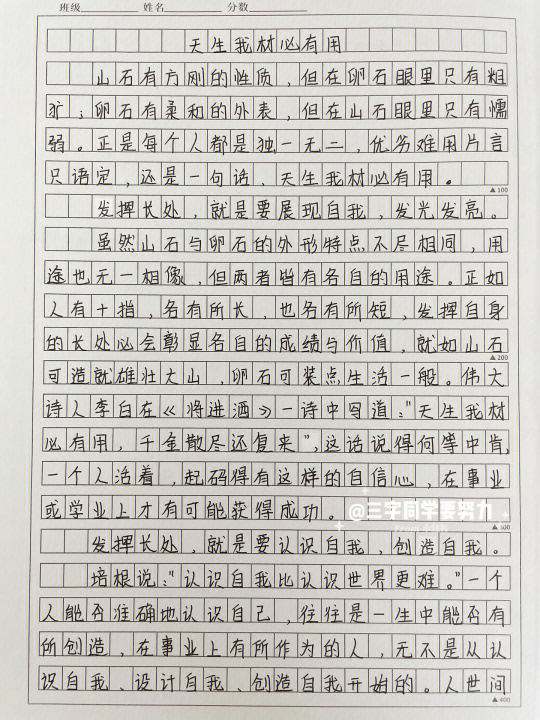 班级 姓名 分数
天生我材必有用
山石有方刚的性质，但在卵石眼里只有粗
犷；卵石有柔和的外表，但在山石眼里只有懦
弱。正是每个人都是独一无二，优劣难用片言
只语定，还是一句话、天生我材必有用。
▲100
发挥长处，就是要展现自我，发光发亮。
虽然山石与卵石的外形特点不尽相同，用
途也无一相像，但两者皆有各自的用途。正如
人有十指，各有所长，也各有所短，发挥自身
的长处必会彰显各自的成绩与价值，就如山石
▲200
可造就雄壮大山，卵石可装点生活一般。伟大
诗人李白在《将进酒》一诗中写道："天生我材
必有用，千金散尽还复来"，这话说得何等中肯，
一个人活着，起码得有这样的自信心，在事业
或学业上才有可能获得成功。
@三字同学要努力
▲300
发挥长处，就是要认识自我，创造自我。
培根说："认识自我比认识世界更难。"一个
人能否准确地认识自己，往往是一生中能否有
所创造，在事业上有所作为的人，无不是从认
识自我、设计自我、创造自我开始的。人世间
▲400